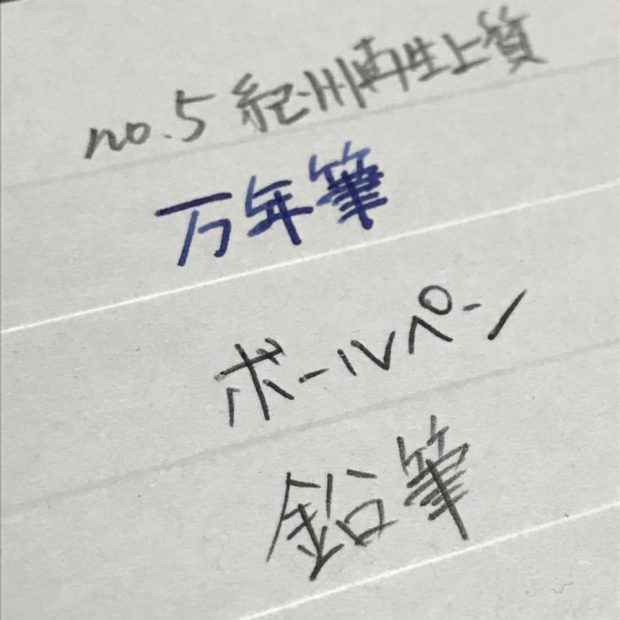 no.5 紀州再生上質
万年筆
ボールペン
鉛筆